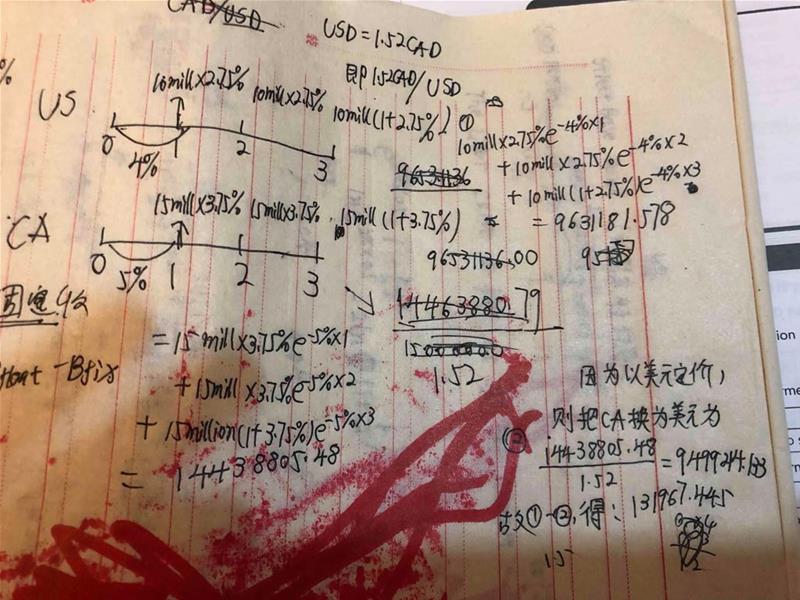 CAD/USD
USD=1.52CAD
即 1.52CAD/USD
%
US
10mill×2.75% 10mill×2.75% 10mill(1+2.75%) ①
0 1 2 3
4%
10mill×2.75%e^-4%×1
+10mill×2.75%e^-4%×2
+10mill(1+2.75%)e^-4%×3
=9631181.578
96531136
CA
15mill×3.75% 15mill×3.75% 15mill(1+3.75%)
0 1 2 3
5%
96531136.00
95
14463880.79
1.52
=15mill×3.75%e^-5%×1
+15mill×3.75%e^-5%×2
+15million(1+3.75%)e^-5%×3
=14438805.48
-Bfix
因为以美元定价,
则把CA换为美元为
② 14438805.48
1.52
=9499214.133
故①-②,得: 131967.445
1.5